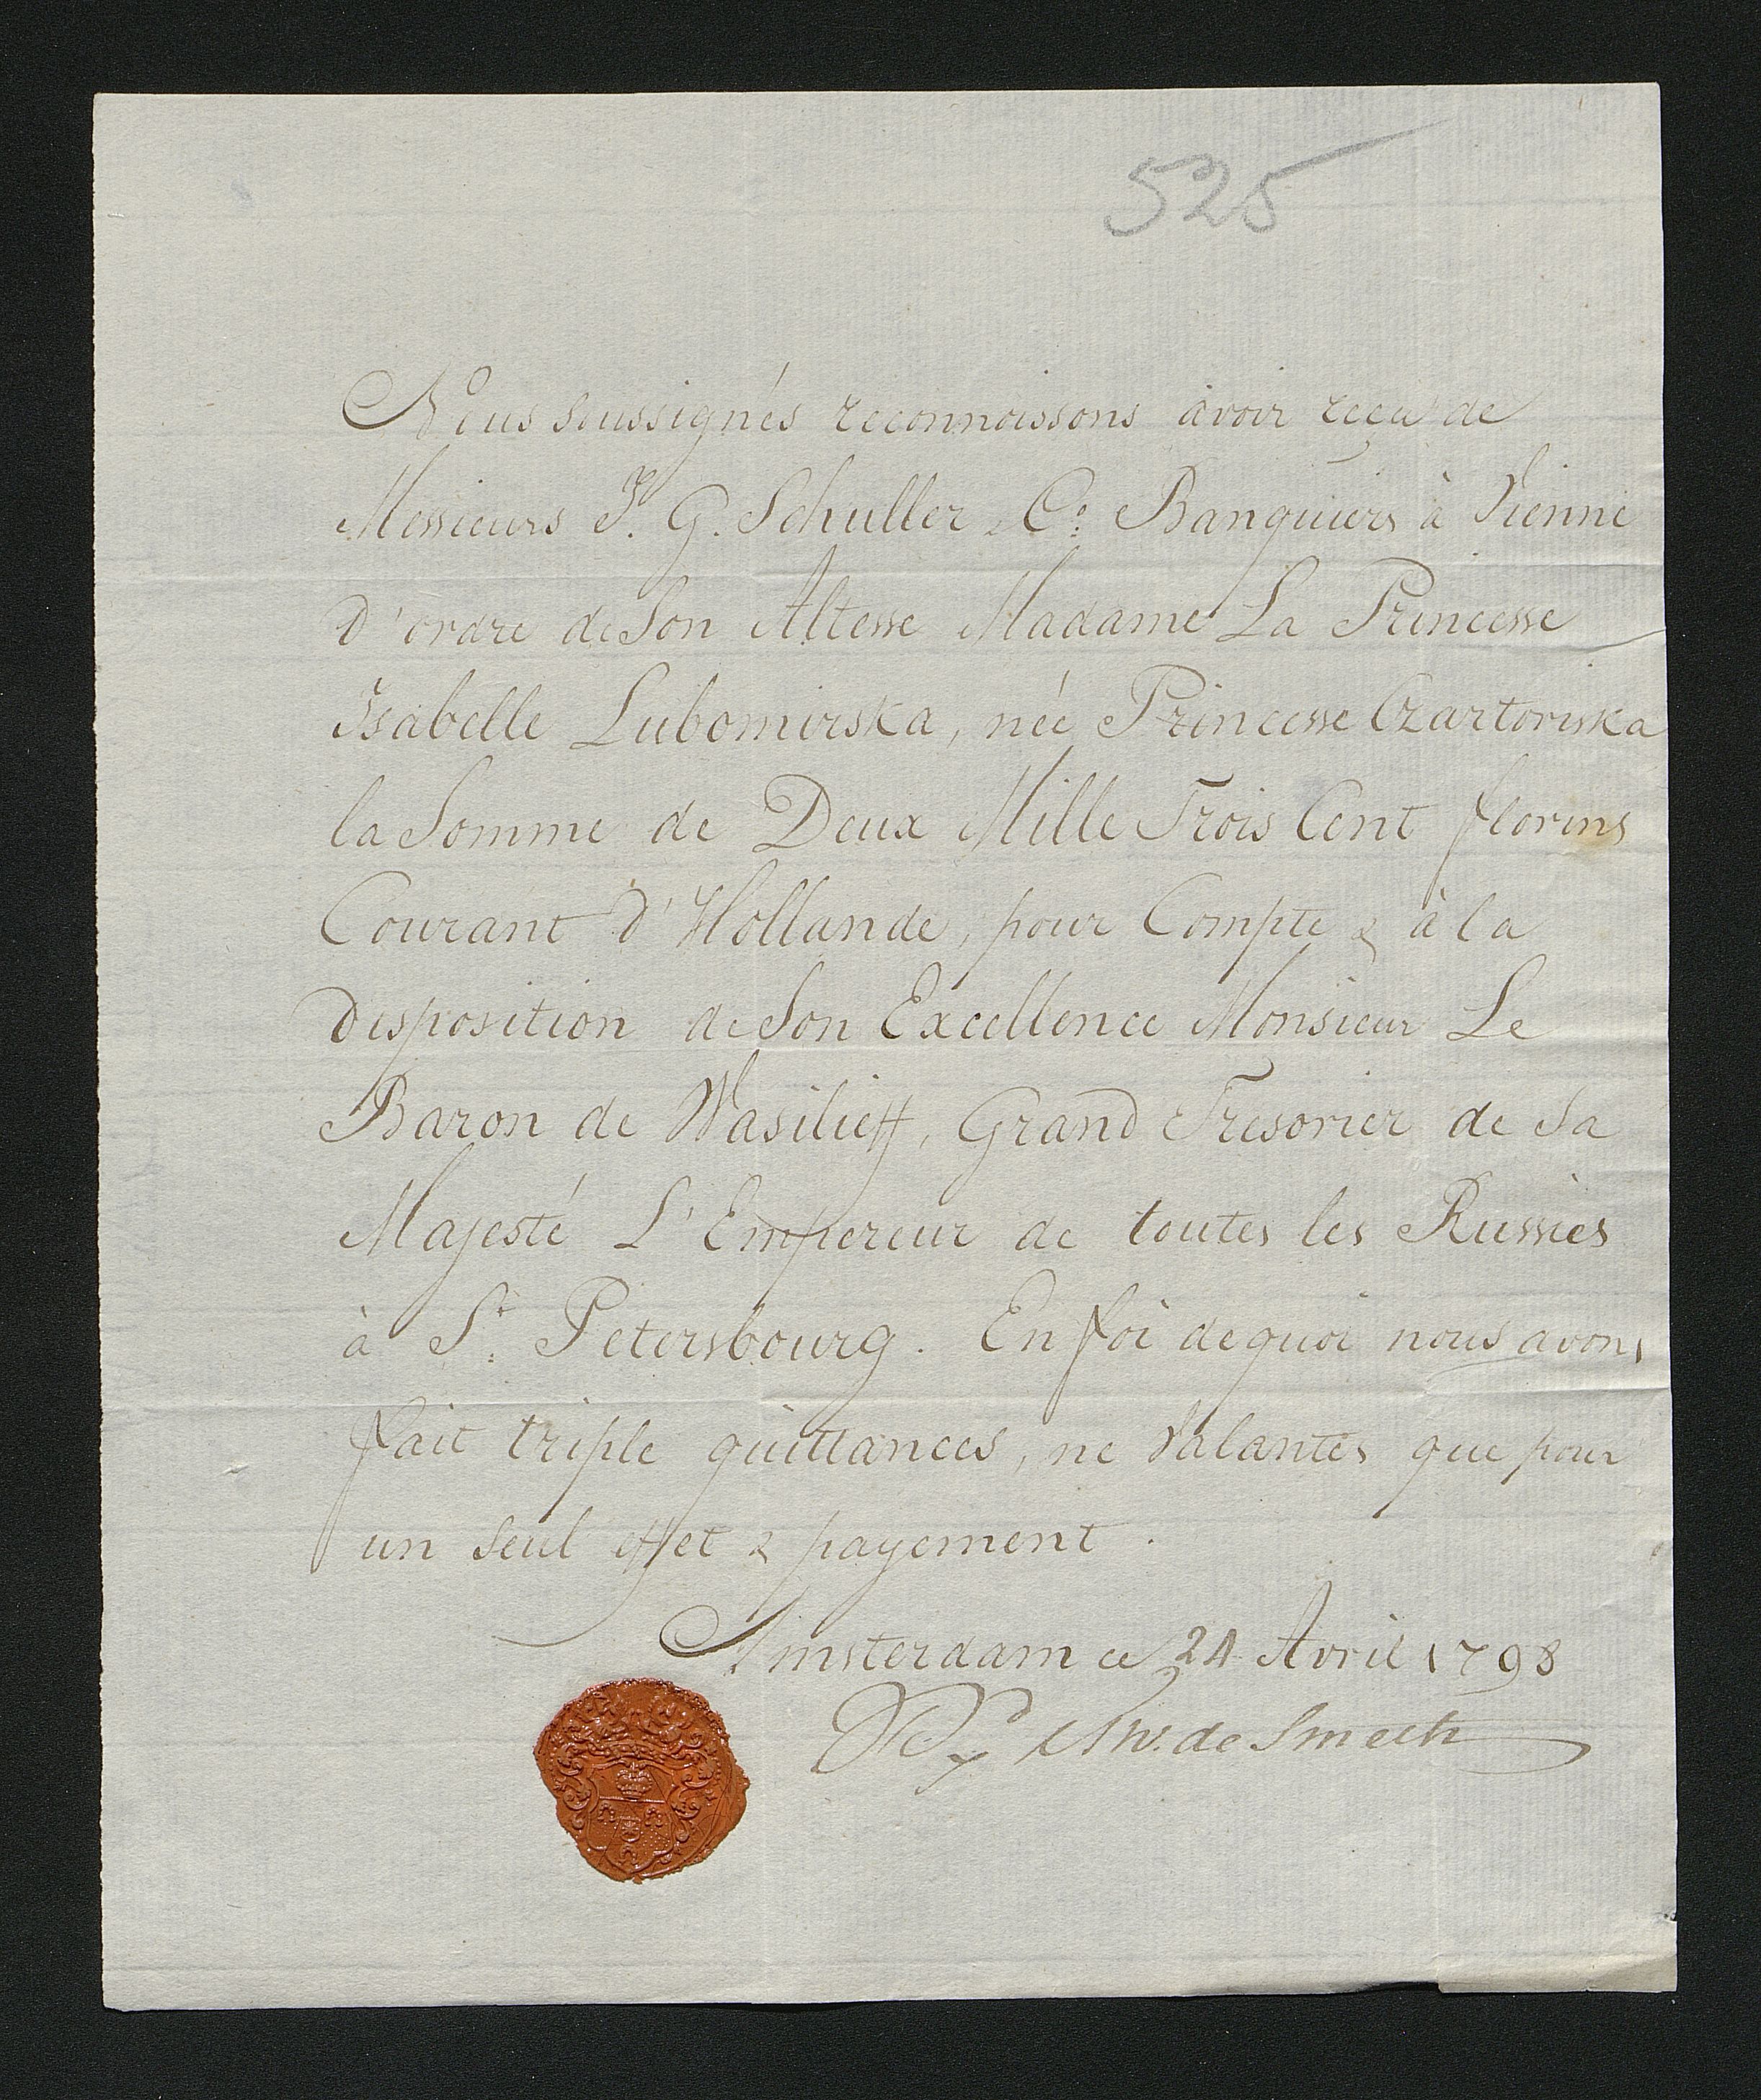 525
Nous soussignés reconnoissons avoir reçu de
Messieurs J. G. Schuller & Co: Banquiers à Vienne
D'ordre de Son Altesse Madame La Princesse
Isabelle Lubomirska, née Princesse Czartoriska
la Somme de Deux Mille Trois Cent florins
Courant D'Hollande, pour Compte & à la
Disposition de Son Excellence Monsieur Le
Baron de Wasilieff, Grand Tresorier de Sa
Majesté L'Empereur de toutes les Russies
à St. Petersbourg. En foi dequoi nous avons
fait triple quittances, ne Valantes que pour
un Seul effet & payement.
Amsterdam ce 24 Avril 1798
de Smeth